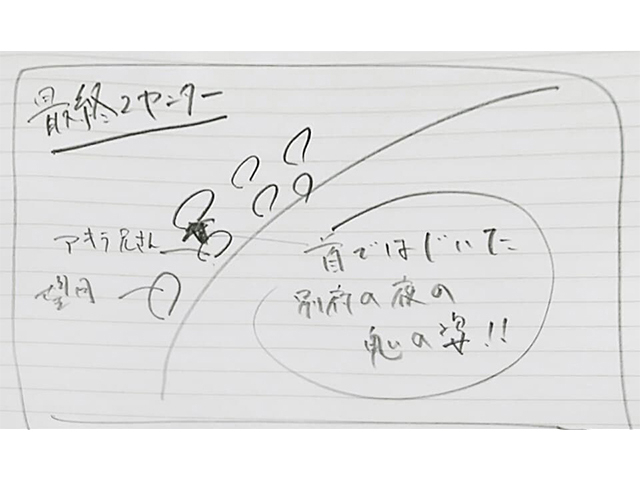 最終2センター
アキラ兄さん
望月
首ではじいた
別府の夜の
鬼の姿!!